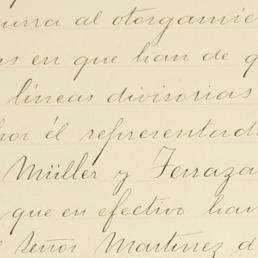 al otorgamie
en que han de q
líneas divisorias
por él representad
Müller y Ferraza
que en efectivo hav
Señor Martinez d